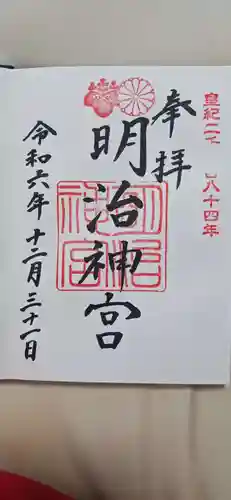 皇紀二千 八十四年
奉拝
明治神宮
明治神宮
令和六年十二月三十一日